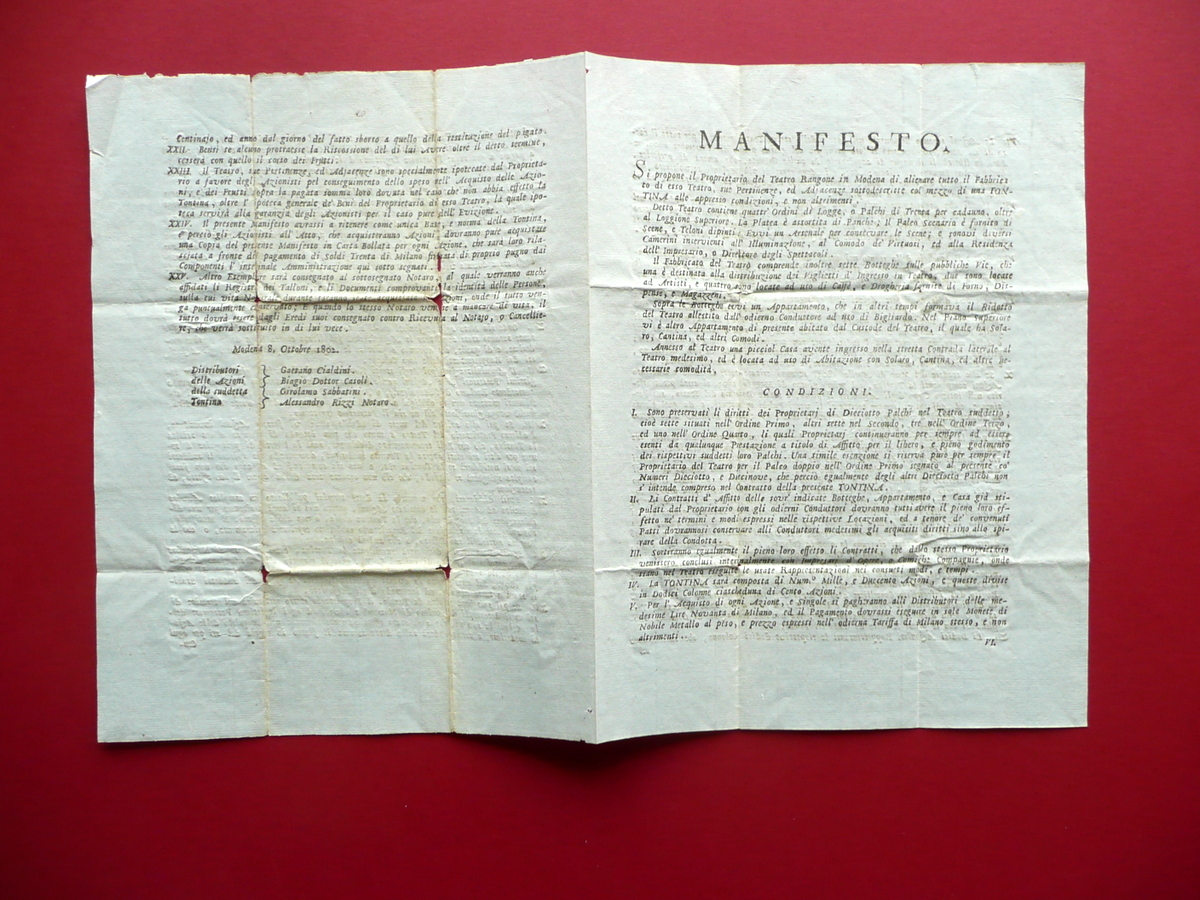 Centinajo, ed anno dal giorno del fatto sborso a quello della restituzione del pagato.
XXII. Bensì se alcuno protraesse la Riscossione del di lui Avere oltre il detto termine,
cesserà con quello il corso dei Frutti.
XXIII. Il Teatro, sue Pertinenze, ed Adjacenze sono specialmente ipotecate dal Proprieta-
rio a favore degli Azionisti pel conseguimento dello speso nell' Acquisto delle Azio-
ni, e dei Frutti sopra la pagata somma loro dovuta nel caso che non abbia effetto la
Tontina, oltre l' ipoteca generale de' Beni del Proprietario di esso Teatro, la quale ipo-
teca servirà alla garanzia degli Azionisti per il caso pure dell' Evizione.
XXIV. Il presente Manifesto avrassi a ritenere come unica Base, e norma della Tontina,
e perciò gli Azionisti all' Atto, che acquisteranno Azioni, dovranno pure acquistare
una Copia del presente Manifesto in Carta Bollata per ogni Azione, che sarà loro rila-
sciata a fronte di pagamento di Soldi Trenta di Milano firmata di proprio pugno dai
Componenti l' interinale Amministrazione qui sotto segnati.
XXV. Altro Esemplare sarà consegnato al sottosegnato Notaro, al quale verranno anche
affidati li Registri dei Talloni, e li Documenti comprovanti la identità delle Persone,
sulla cui vita
ga puntualmente E quando lo stesso Notaro venisse a mancare di vita, il
tutto dovrà essere dagli Eredi suoi consegnato contro Ricevuta al Notaro, o Cancellie-
re, che verrà sostituito in di lui vece.
Modena 8. Ottobre 1802.
Distributori
delle Azioni
della suddetta
Tontina
Gaetano Cialdini.
Biagio Dottor Casoli.
Girolamo Sabbatini.
Alessandro Rizzi Notaro.
MANIFESTO.
Si propone il Proprietario del Teatro Rangone in Modena di alienare tutto il Fabbrica-
to di esso Teatro, sue Pertinenze, ed Adjacenze sottodescritte col mezzo di una TON-
TINA alle appresso condizioni, e non altrimenti.
Detto Teatro contiene quattr' Ordini di Logge, o Palchi di Trenta per cadauno, oltre
al Loggione Superiore. La Platea è assortita di Panche; Il Palco Scenario è fornito di
Scene, e Teloni dipinti; Evvi un Arsenale per conservare le Scene; e sonovi diversi
Camerini inservienti all' Illuminazione, al Comodo de' Virtuosi, ed alla Residenza
dell' Impresario, o Direttore degli Spettacoli.
Il Fabbricato del Teatro comprende inoltre sette Botteghe sulle pubbliche Vie, che
una è destinata alla distribuzione dei Viglietti d' Ingresso in Teatro, due sono locate
ad Artisti, e quattro sono locate ad uso di Caffè, e Drogheria fornite di Forno, Dis-
pense, e Magazzeni.
Sopra le Botteghe evvi un Appartamento, che in altri tempi formava il Ridotto
del Teatro allestito dall' odierno Conduttore ad uso di Bigliardo. Nel Piano Superiore
vi è altro Appartamento di presente abitato dal Custode del Teatro, il quale ha Sola-
ro, Cantina, ed altri Comodi.
Annesso al Teatro una picciol Casa avente ingresso nella stretta Contrada laterale al
Teatro medesimo, ed è locata ad uso di Abitazione con Solaro, Cantina, ed altre ne-
cessarie comodità,
CONDIZIONI.
I. Sono preservati li diritti dei Proprietarj di Dieciotto Palchi nel Teatro suddetto,
cioè sette situati nell' Ordine Primo, altri sette nel Secondo, tre nell' Ordine Terzo,
ed uno nell' Ordine Quarto, li quali Proprietarj continueranno per sempre ad essere
esenti da qualunque Prestazione a titolo di Affitto per il libero, e pieno godimento
dei rispettivi suddetti loro Palchi. Una simile esenzione si riserva pure per sempre il
Proprietario del Teatro per il Palco doppio nell' Ordine Primo segnato al presente co'
Numeri Dieciotto, e Diecinove, che perciò egualmente degli altri Dieciotto Palchi non
s' intende compreso nel Contratto della presente TONTINA.
II. Li Contratti d' Affitto delle sovr' indicate Botteghe, Appartamento, e Casa già sti-
pulati dal Proprietario con gli odierni Conduttori dovranno tutti avere il pieno loro ef-
fetto ne' termini e modi espressi nelle rispettive Locazioni, ed a tenore de' convenuti
Patti dovrannosi conservare alli Conduttori medesimi gli acquisiti diritti sino allo spi-
rare della Condotta.
III. Sortiranno egualmente il pieno loro effetto li Contratti, che dallo stesso Proprietario
venissero conclusi interinalmente con Impresarj d' Opere, o Comiche Compagnie, onde
siano nel Teatro eseguite le usate Rappresentazioni nei consueti modi, e tempi.
IV. La TONTINA sarà composta di Num.° Mille, e Duecento Azioni, e queste divise
in Dodici Colonne ciascheduna di Cento Azioni.
V. Per l' Acquisto di ogni Azione, e Singole si pagheranno alli Distributori delle me-
desime Lire Novanta di Milano, ed il Pagamento dovrassi eseguire in sole Monete di
Nobile Metallo al peso, e prezzo espressi nell' odierna Tariffa di Milano stesso, e non
altrimenti.
VI.